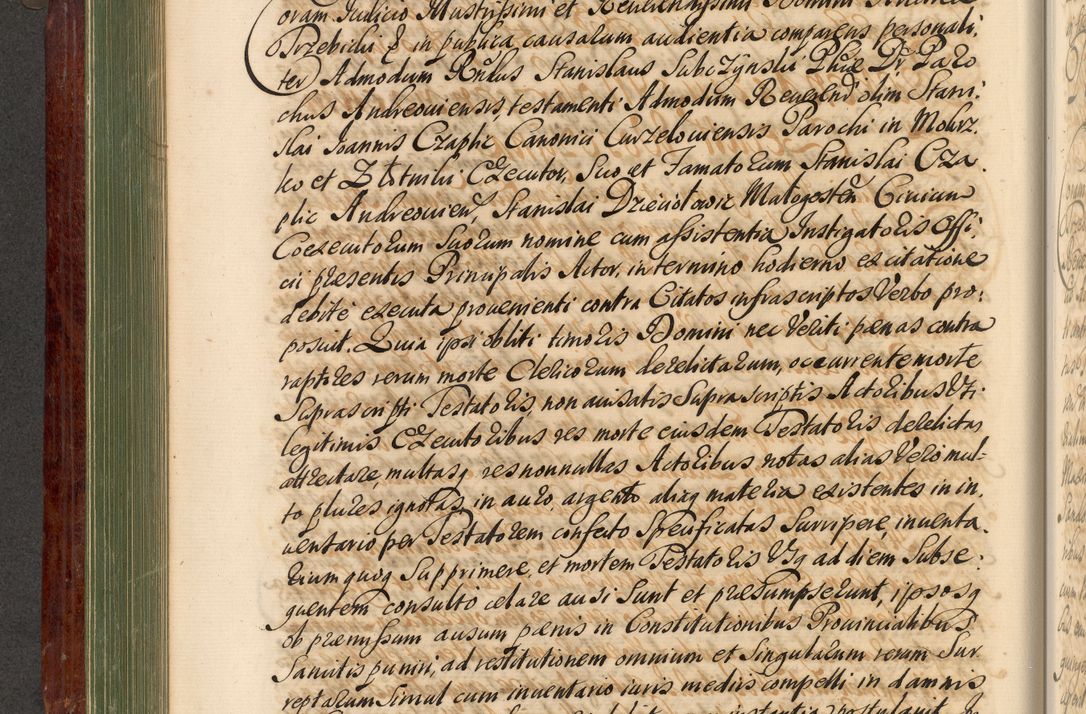 oram Iudicio Illustrissimi et Reverendissimi Domini Andreæ
Trzebicki &c in publica causarum audientia comparens personali,
ter Admodum Rndus Stanislaus Subczynski Phiæ Dr Paro
chus Andreouiensis, testamenti Admodum Reuerend olim Stani,
slai Ioannis Czaplic Canonici Curzelouiensis Parochi in Mokrz,
ko et Executor, Suo et Famatorum Stanislai Cza
plic Andreouien, Stanislai Dzieciołowic Małogosten Ciuium
Coexecutorum Suorum nomine cum assistentia Instigatoris Offi,
cii præsentis Principalis Actor, in termino hodierno ex citatione
debite executa prouenienti contra Citatos infrascriptos Verbo pro:
posuit. Quia ipsi obliti timoris Domini nec Veriti pænas contra
raptores rerum morte Clericorum derelictarum, occurrente morte
Suprascripti Testatoris, non auisatis Suprascriptis Actoribus Vti
legitimis Executoribus res morte eiusdem Testatoris derelictas
attrectare, multasq res nonnullas Actoribus notas alias Vero mul-
to plures ignotas, in auro, argento aliaq materia existentes in in,
uentario per Testatorem confecto Specificatas Surripere, inuenta
rium quoq Supprimere, et mortem Testatoris Vsq ad diem Subse:
quentem consulto celare ausi Sunt et præsumpserunt, ipsosq
ob præmissum ausum pænis in Constitutionibus Prouincialibus
Sancitis puniri, ad restitutionem omnium et Singularum rerum Sur
reptarum Simul cum inuentario iuris mediis compelli in damnis